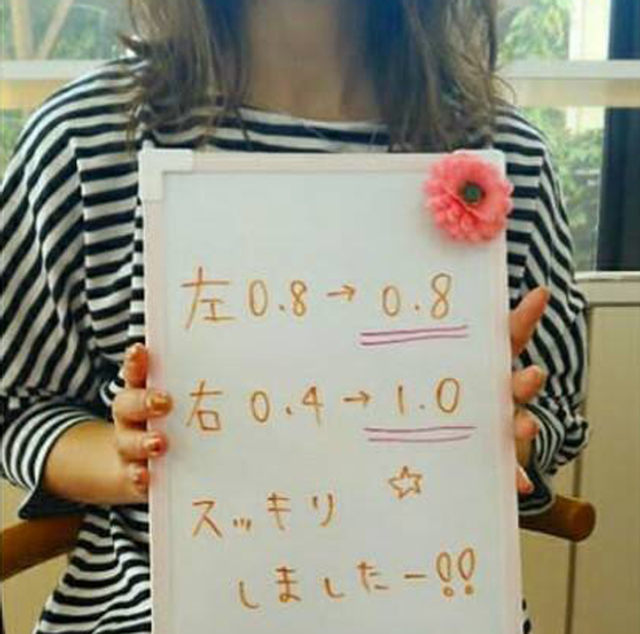 左 0.8 → 0.8
右 0.4 → 1.0
☆
スッキリ
しましたー!!